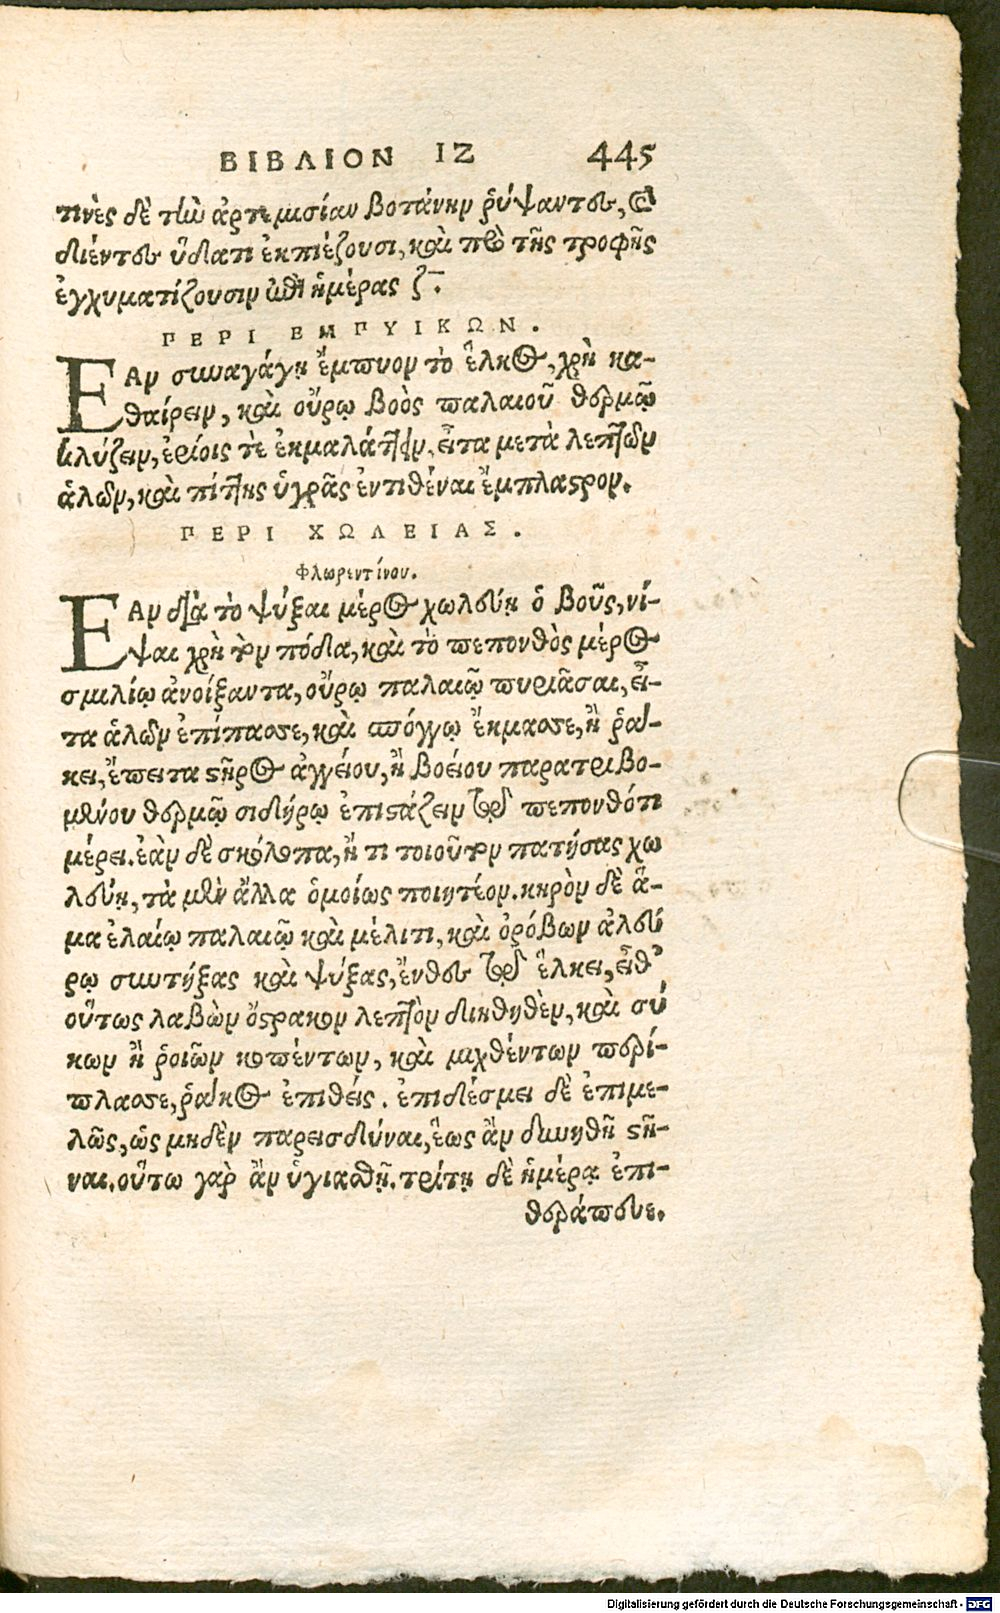 ΒΙΒΛΙΟΝ ΙΖ 445
τινὲς δὲ τὴν ἀρτεμισίαν βοτάνην ῥύψαντες, καὶ
διέντες ὕδατι ἐκπιέζουσι, καὶ πρὸ τῆς τροφῆς
ἐγχυματίζουσιν ἐπὶ ἡμέρας ζ.
ΠΕΡΙ ΕΜΠΥΙΚΩΝ.
ΕΑν συναγάγῃ ἔμπυον τὸ ἕλκος, χρὴ κα-
θαίρειν, καὶ οὔρῳ βοὸς παλαιοῦ θερμῷ
κλύζειν, ἐρίοις τε ἐκμαλάττειν, εἶτα μετὰ λεπτῶν
ἁλῶν, καὶ πίττης ὑγρᾶς ἐντιθέναι ἔμπλαστρον.
ΠΕΡΙ ΧΩΛΕΙΑΣ.
Φλωρεντίνου.
ΕΑν διὰ τὸ ψύξαι μέρος χωλεύῃ ὁ βοῦς, νί-
ψαι χρὴ τὸν πόδα, καὶ τὸ πεπονθὸς μέρος
σμιλίῳ ἀνοίξαντα, οὔρῳ παλαιῷ πυριᾶσαι, εἶ-
τα ἁλῶν ἐπίπασσε, καὶ σπόγγῳ ἔκμασσε, ἢ ῥά-
κει, ἔπειτα στῆρος αἰγείου, ἢ βοείου παρατριβο-
μένου θερμῷ σιδήρῳ ἐπιστάζειν τῷ πεπονθότι
μέρει. ἐὰν δὲ σκόλοπα, ἤ τι τοιοῦτον πατήσας χω
λεύῃ, τὰ μὲν ἄλλα ὁμοίως ποιητέον. κηρὸν δὲ ἅ-
μα ἐλαίῳ παλαιῷ καὶ μέλιτι, καὶ ὀρόβων ἀλεύ
ρῳ συντήξας καὶ ψύξας, ἔνθες τῷ ἕλκει, εἶθ'
οὕτως λαβὼν ὄστρακον λεπτὸν διηθηθὲν, καὶ σύ
κων ἢ ῥοιῶν κοπέντων, καὶ μιχθέντων περί-
πλασσε, ῥάκος ἐπιθείς. ἐπιδέσμει δὲ ἐπιμε-
λῶς, ὡς μηδὲν παρεισδύναι, ἕως ἂν δυνηθῇ στῆ-
ναι. οὕτω γὰρ ἂν ὑγιασθῇ. τρίτῃ δὲ ἡμέρᾳ ἐπι-
θεράπευε.
Digitalisierung gefördert durch die Deutsche Forschungsgemeinschaft - DFG